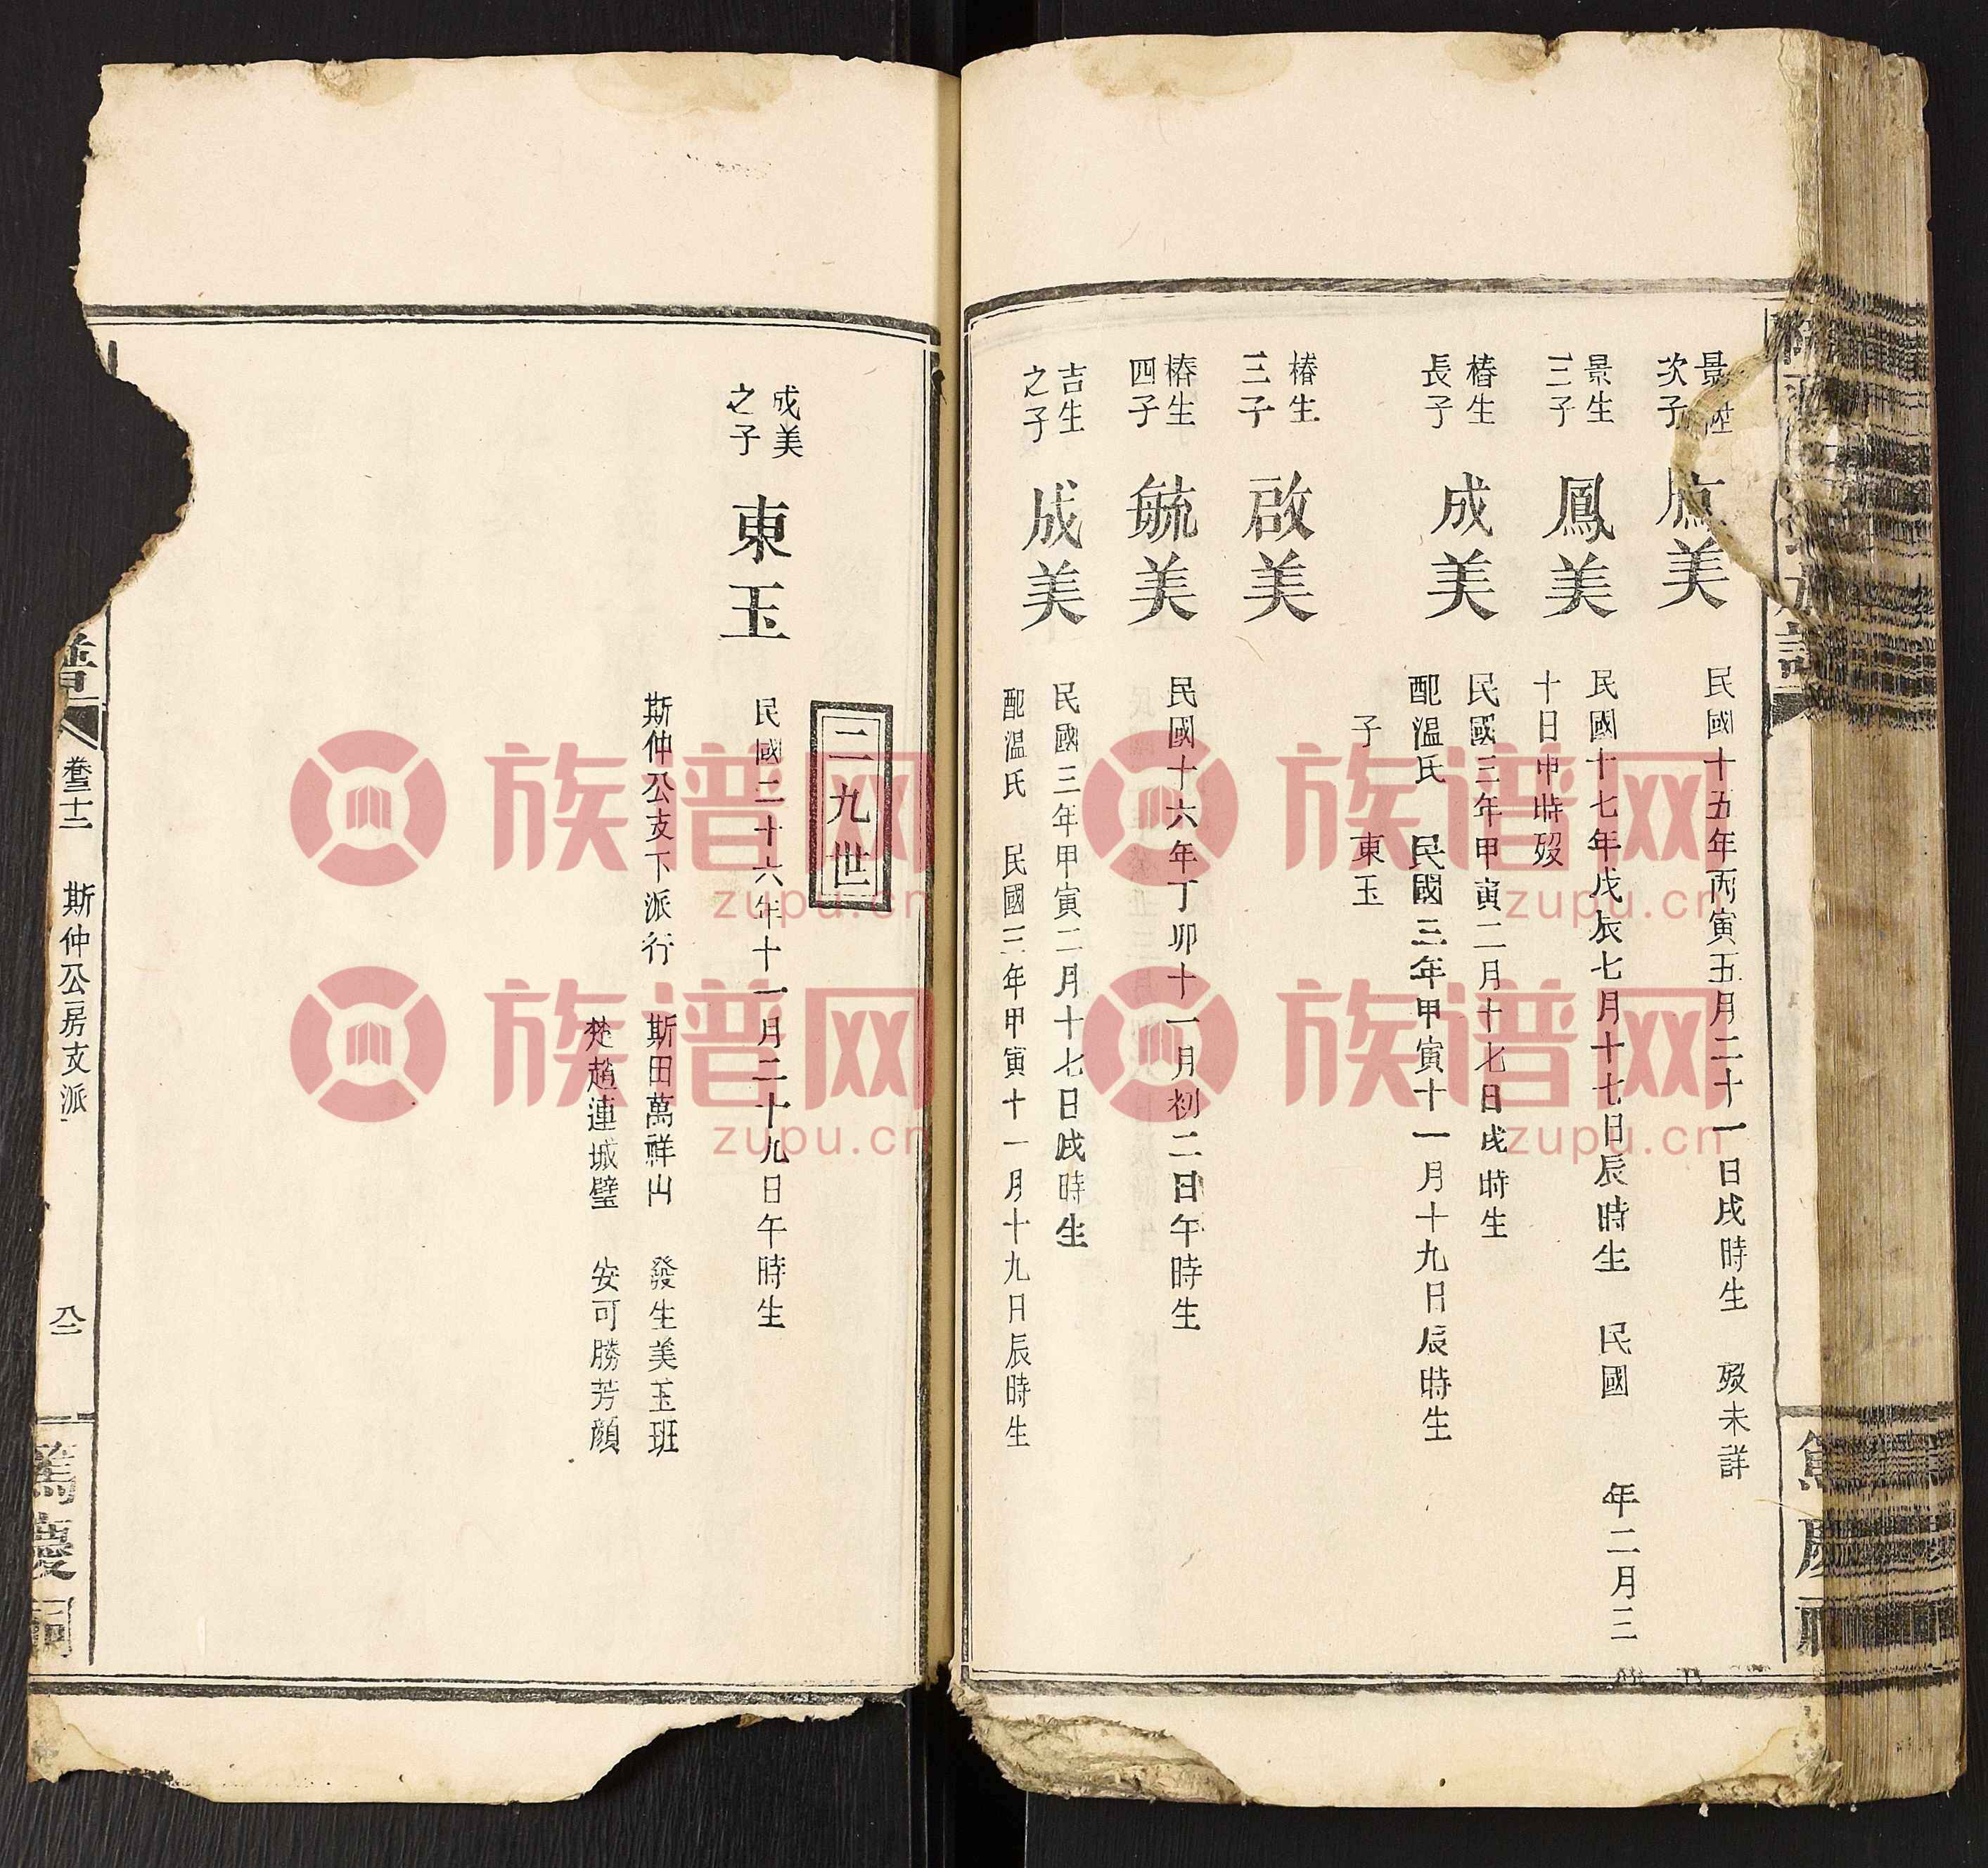 景
次子
美
民國十五年丙寅五月二十一日戌時生 歿未詳
景生
三子
鳳美
民國十七年戊辰七月十七日辰時生 民國 年二月三
十日申時歿
椿生
長子
成美
民國三年甲寅二月十七日戌時生
配温氏 民國三年甲寅十一月十九日辰時生
子 東玉
椿生
三子
啟美
椿生
四子
毓美
民國十六年丁卯十一月初二日午時生
吉生
之子
成美
民國三年甲寅二月十七日戌時生
配温氏 民國三年甲寅十一月十九日辰時生
二九世
成美
之子
東玉
民國三十六年十一月二十九日午時生
斯仲公支下派行 斯田萬祥山 發生美玉班
楚趙連城璧 安可勝芳顏
譜
卷三十二 斯仲公房支派
八二
篤慶祠
族谱网
zupu.cn
族谱网
zupu.cn
族谱网
zupu.cn
族谱网
zupu.cn